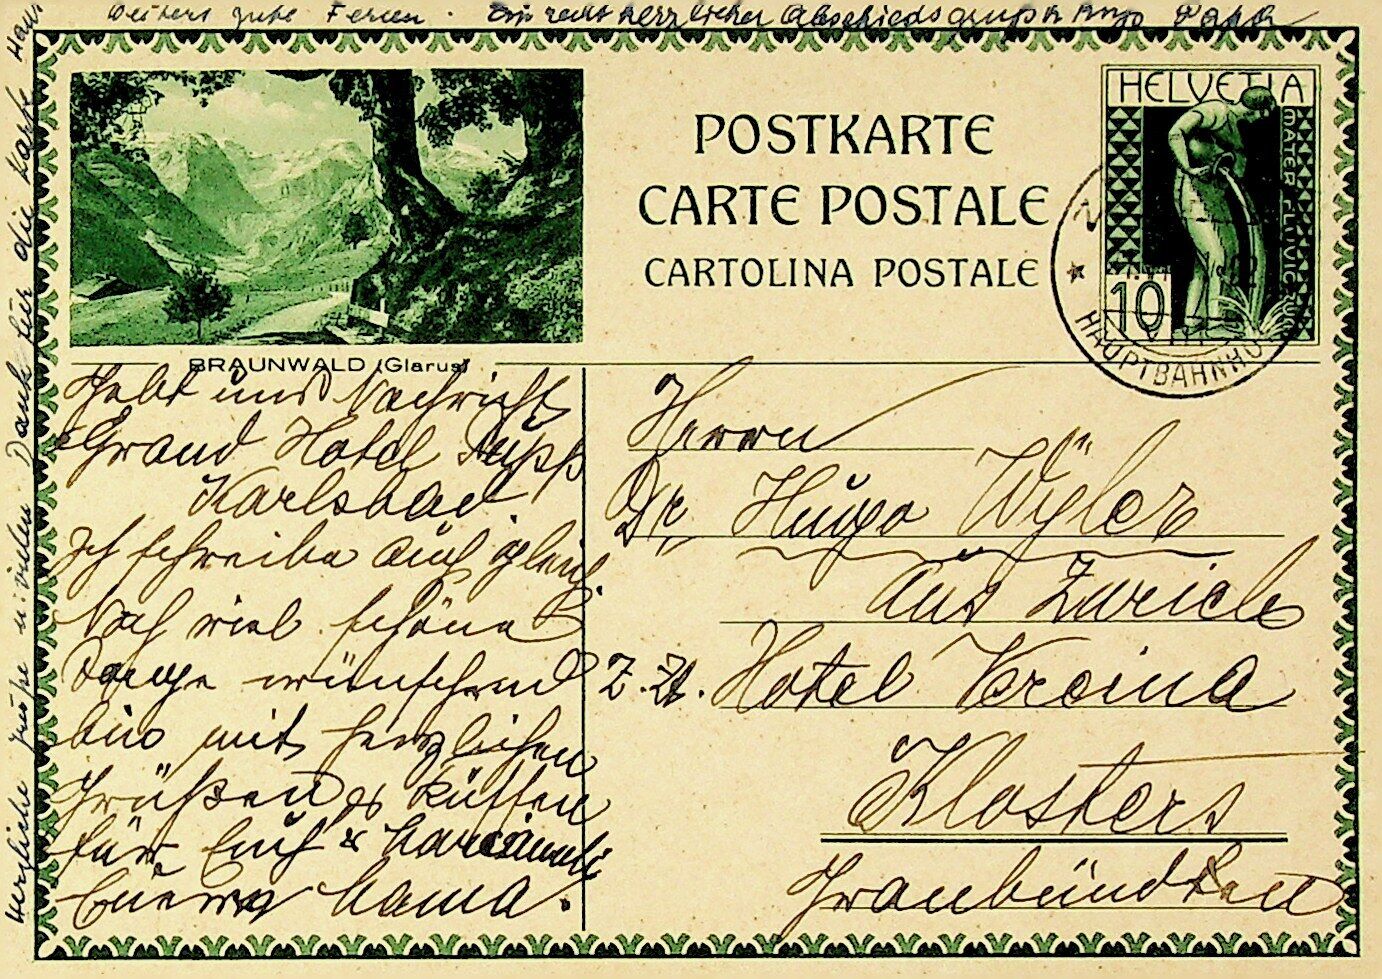 weiters gute Ferien. Ein recht herzlicher Abschiedsgruss Papa
Herzliche Grüsse u. vielen Dank für die Karte
POSTKARTE
CARTE POSTALE
CARTOLINA POSTALE
HELVETIA
MATER FLUVIORUM
10
HAUPTBAHNHOF
BRAUNWALD (Glarus)
Gebt uns Nachricht
Grand Hotel Pupp
Karlsbad.
Ich schreibe auch gleich.
Noch viel schöne
Tage wünschend
bin mit herzlichen
Grüßen & Küssen
für Euch &
Euere Mama.
Herrn
Dr. Hugo Wyler
aus Zürich
z. Zt. Hotel Vereina
Klosters
Graubünden